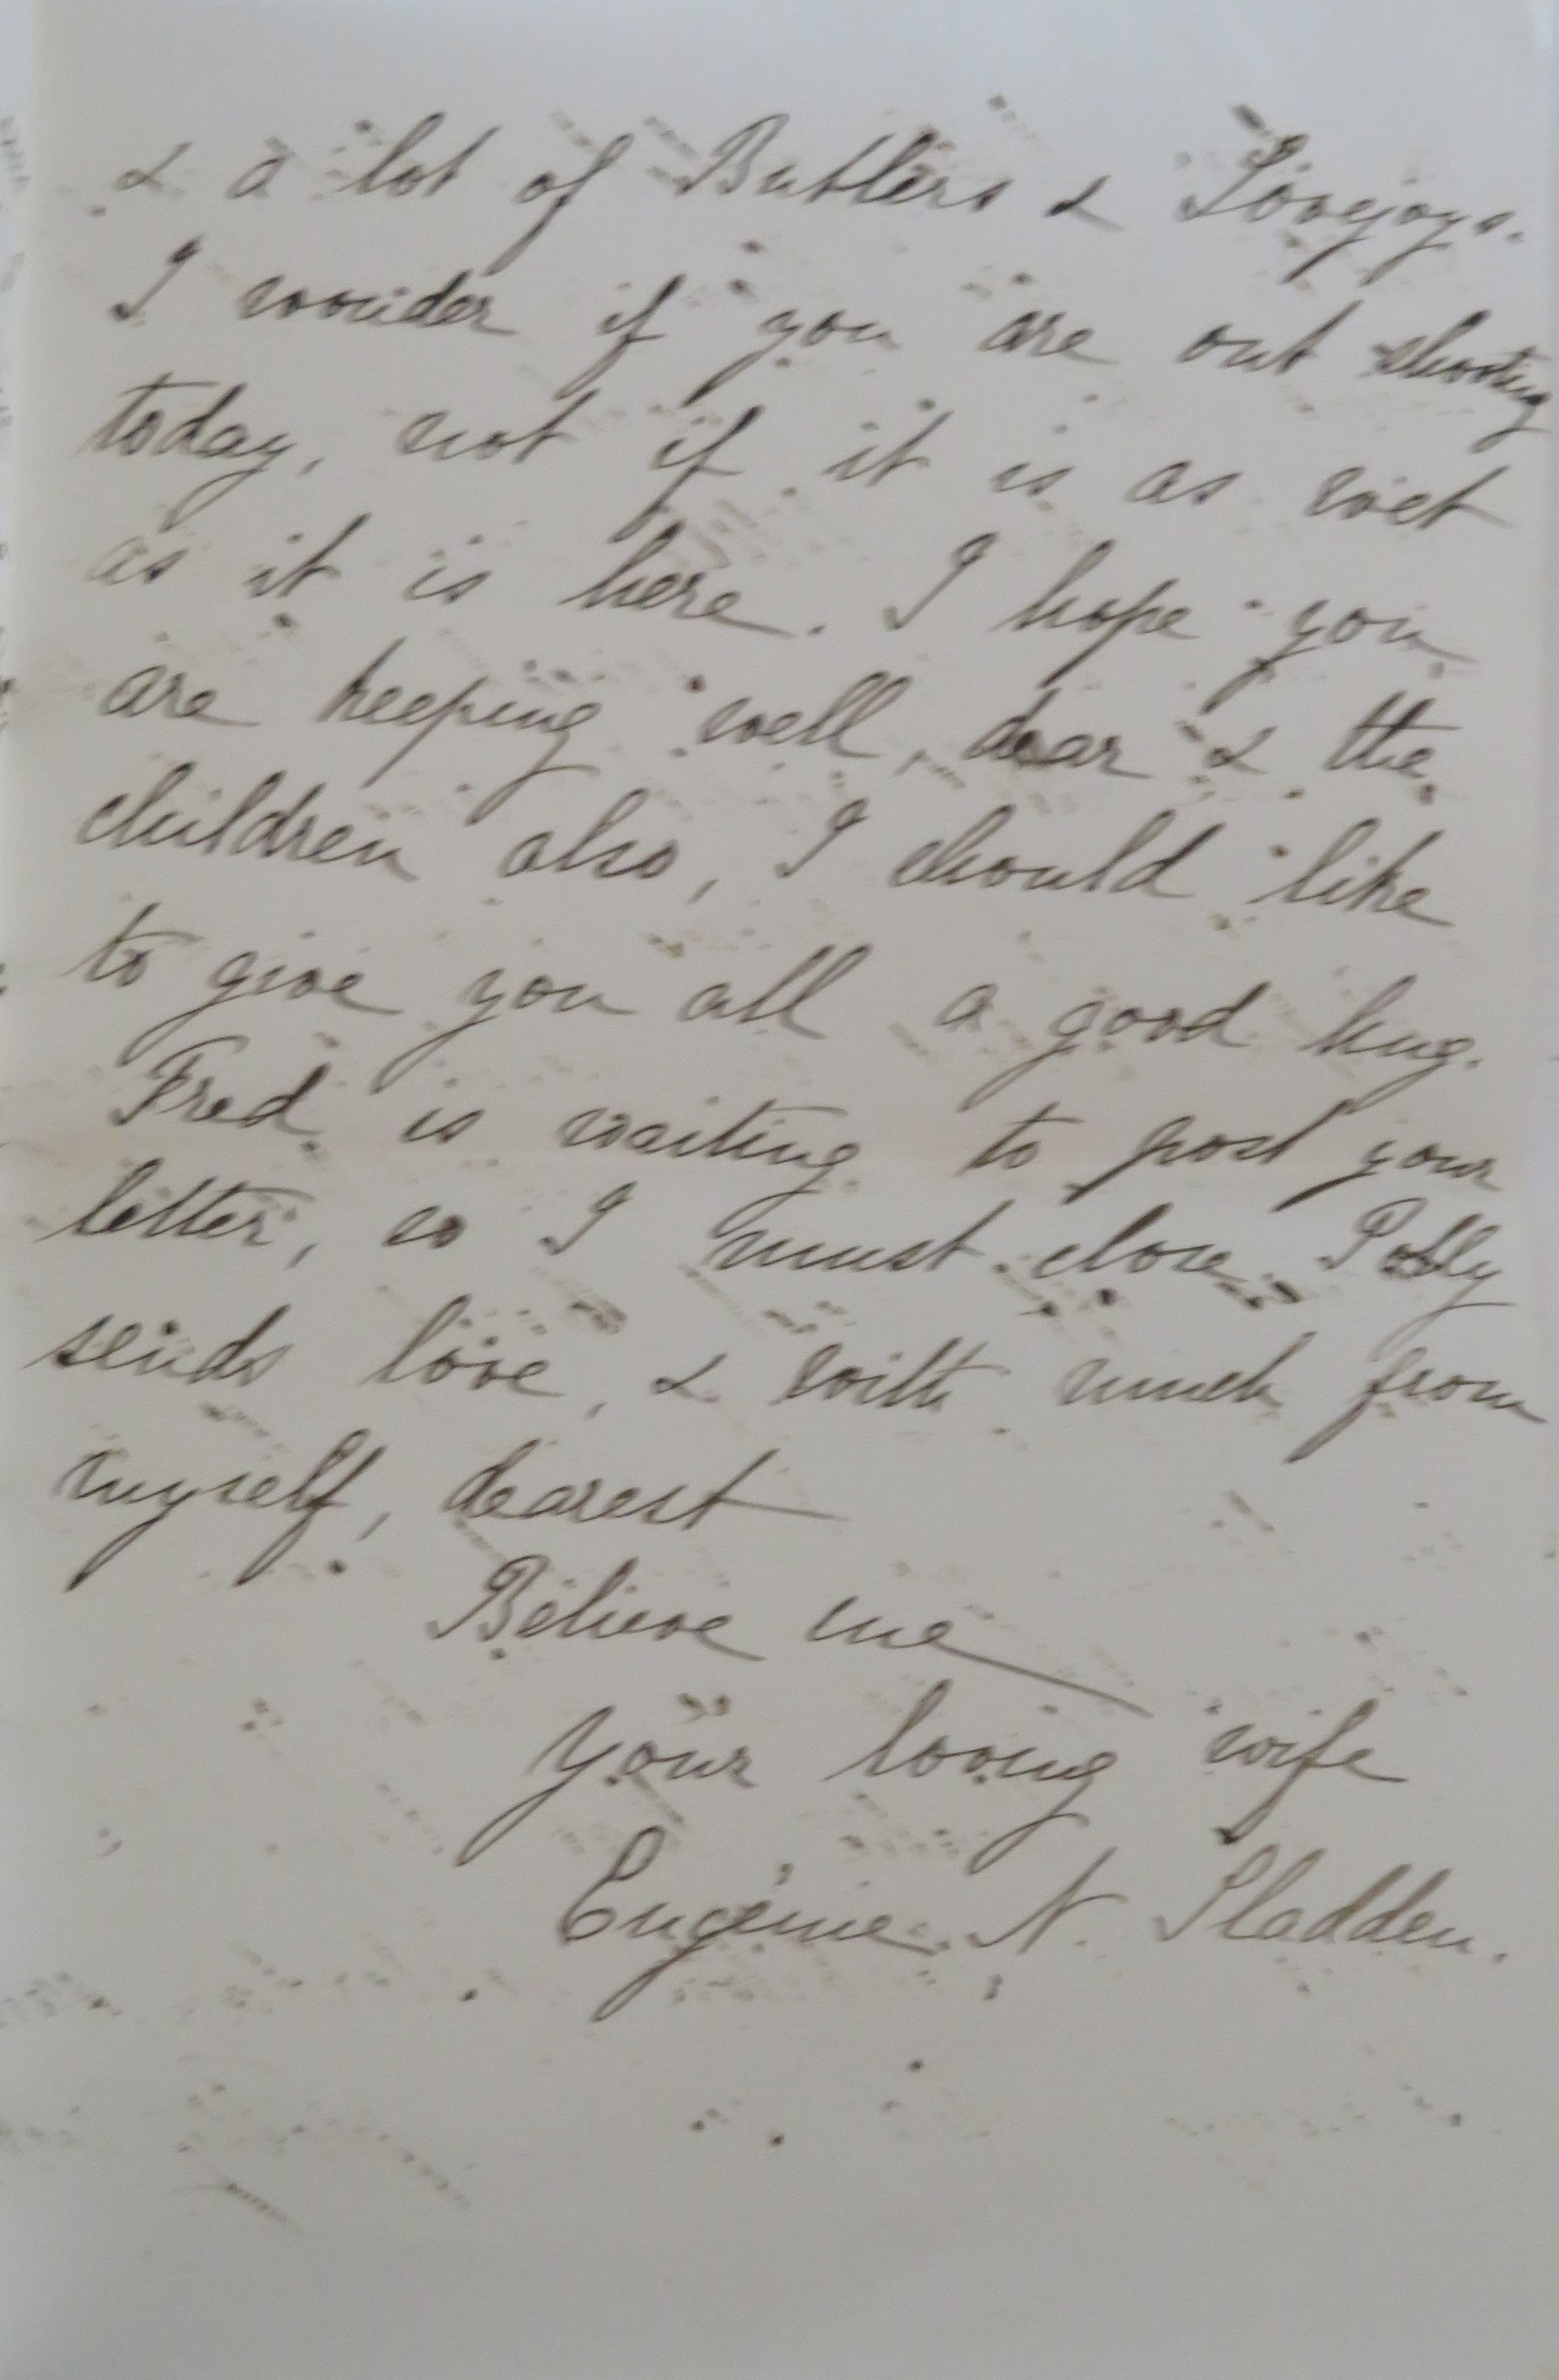 & a lot of Butlers & Lovejoys.
I wonder if you are out shooting
today, not if it is as wet
as it is here. I hope you
are keeping well, dear & the
children also, I should like
to give you all a good hug.
Fred is waiting to post your
letter, so I must close. Polly
sends love, & with much from
myself, dearest
Believe me
your loving wife
Eugénie N. Sladden.